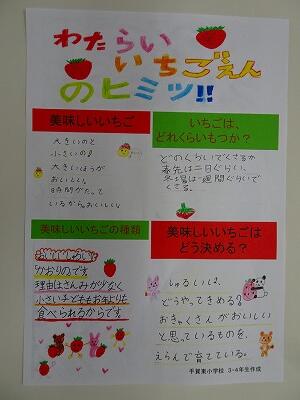 わたらい
いちごえん
のヒミツ!!
美味しいいちご
大きいのと
小さいの?
大きいほうが
おいしい。
時間がたって
いるからおいしい。
いちごは、
どれくらいもつか？
どのくらいでくさるか
春先は二日ぐらい、
冬場は一週間ぐらいで
くさる。
美味しいいちごの種類
かおりのです
理由はさんみが少なく
小さい子どももお年よりも
食べられるからです
美味しいいちごは
どう決める？
しゅるいは、
どうやってきめる?
おきゃくさんがおいしい
と思っているものを、
えらんで育てている。
手賀東小学校 3・4年生作成